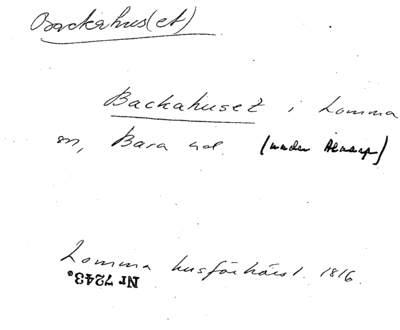 Backahus(et)
Backahuset i Lomma
sn, Bara hd. (under Alnarp)
Lomma husförhörsl. 1816.
Nr 7243.